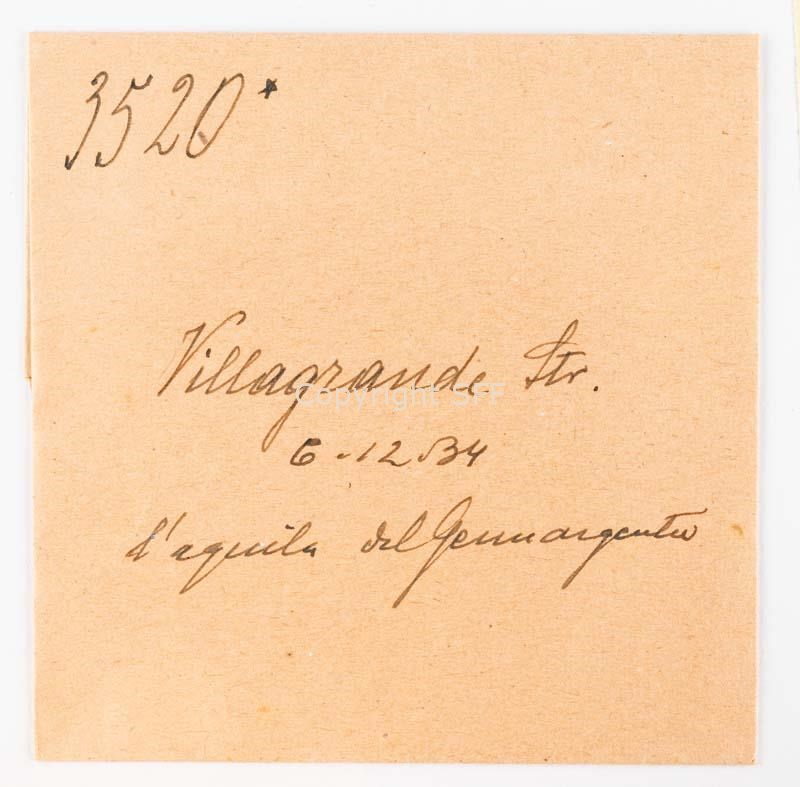 3520*
Villagrande Str.
Copyright SFF
6-12.34
l'aquila del Gennargentu